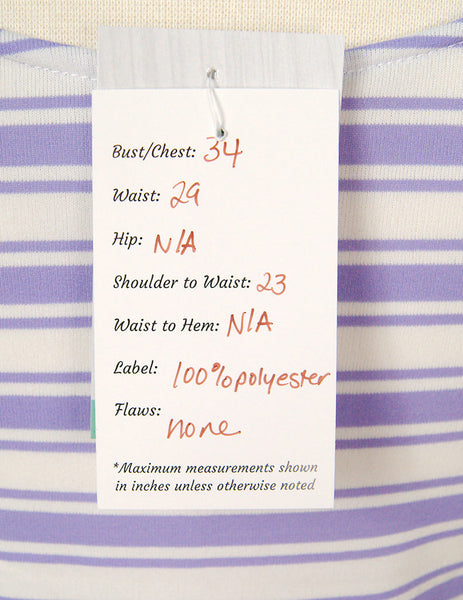 Bust/Chest: 34
Waist: 29
Hip: N/A
Shoulder to Waist: 23
Waist to Hem: N/A
Label: 100% polyester
Flaws: none
*Maximum measurements shown
in inches unless otherwise noted